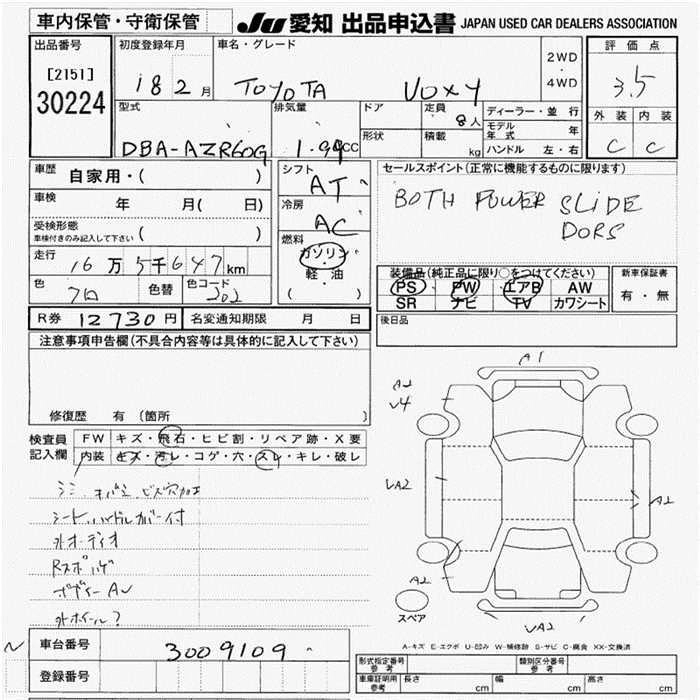 車内保管・守衛保管
JU 愛知 出品申込書 JAPAN USED CAR DEALERS ASSOCIATION
出品番号
[2151]
30224
初度登録年月
18 2 月
車名・グレード
TOYOTA VOXY
2WD
・
4WD
評価点
3.5
外装 内装
C C
型式
DBA-AZR60G
排気量
1.99CC
ドア
形状
定員
8人
積載
kg
ディーラー・並行
モデル年式 年
ハンドル 左・右
車歴 自家用・( )
車検 年 月( 日)
受検形態
車検付きのみ記入して下さい ( )
走行 16万5千647km
色 クロ 色替 色コード 202
シフト
AT
冷房
AC
燃料
ガソリン
・
軽・油
( )
セールスポイント(正常に機能するものに限ります)
BOTH POWER SLIDE
DORS
装備品(純正品に限り○をつけてください)
PS PW エアB AW
SR ナビ TV カワシート
新車保証書
有・無
R券 12730円 名変通知期限 月 日
後日品
注意事項申告欄(不具合内容等は具体的に記入して下さい)
修復歴 有(箇所 )
検査員
記入欄
FW キズ・飛石・ヒビ割・リペア跡・X要
内装 キズ・汚レ・コゲ・穴・スレ・キレ・破レ
シミ ビス穴
シート、ハンドルカバー付
外オーディオ
外ホイール?
A1
A2
V4
VA2
A2
A2
VA2
スペア
A-キズ E-エクボ U-凹み W-補修跡 S-サビ C-腐食 XX-交換済
車台番号 3009109
登録番号
形式指定番号
参考
類別区分番号
参考
車庫証明用
参考
長さ cm 幅 cm 高さ cm